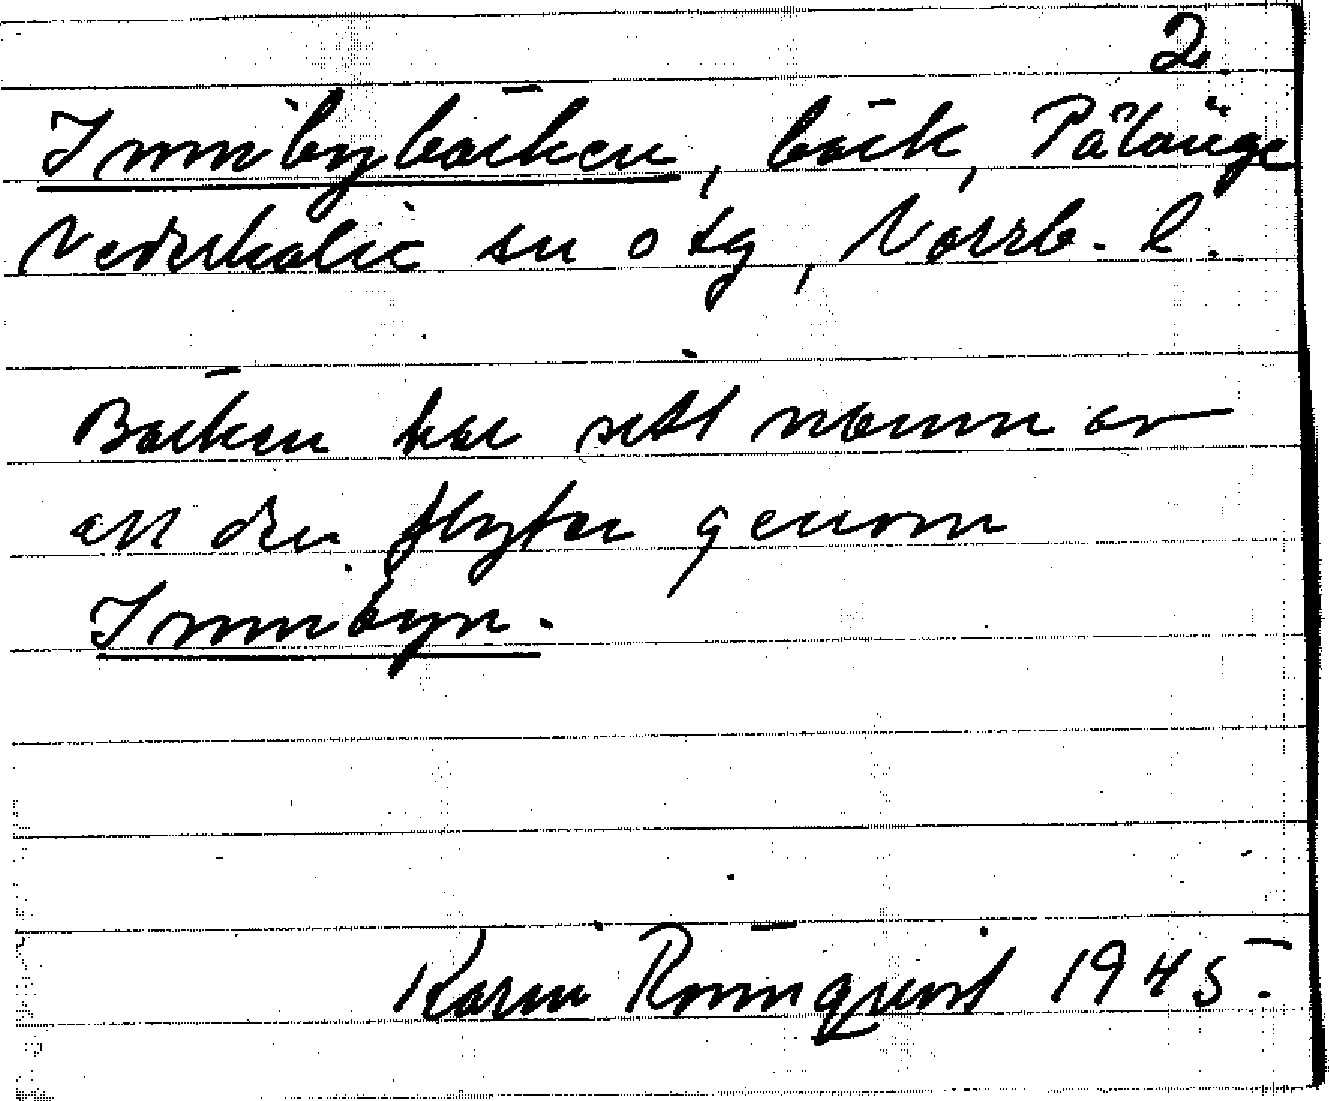 2.
Innibybäcken, bäck, Pålänge
Nederkalix sn o tg, Norrb. l.
Bäcken har sitt namn av
att den flyter genom
Innibyn.
Karin Rönnqvist 1945.